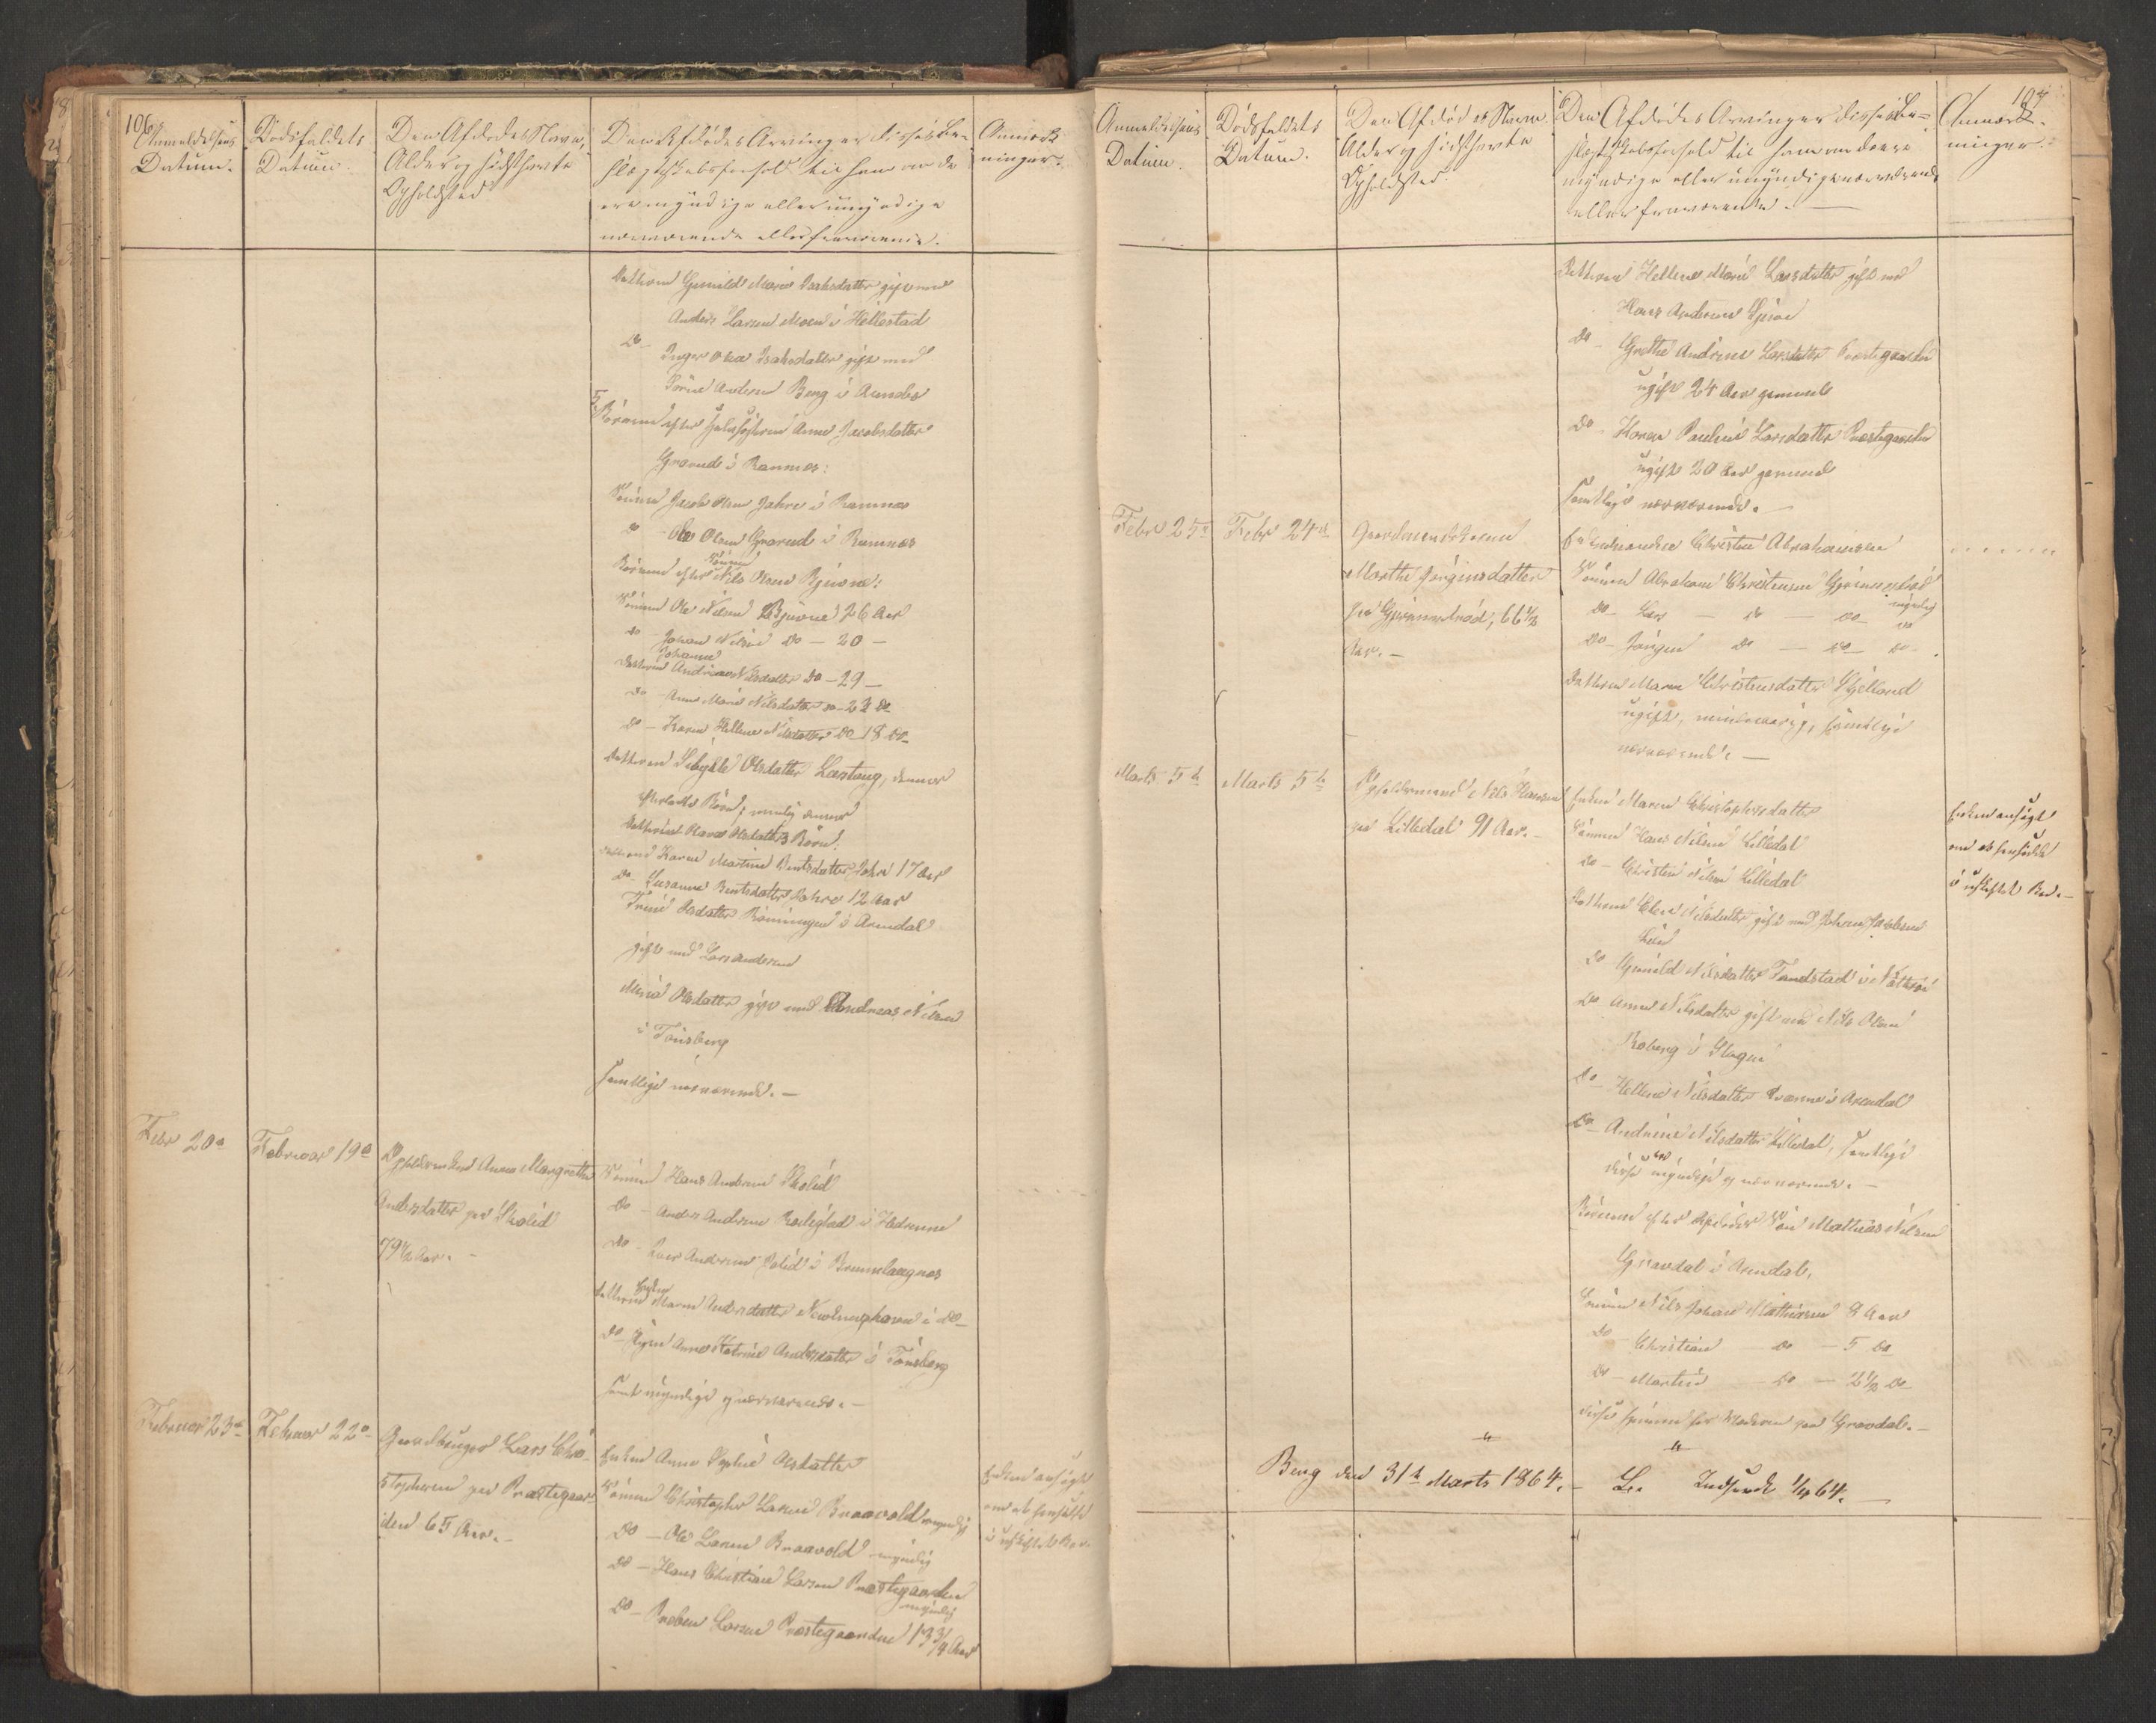 106
Anmeldelsens
Datum.
Dødsfaldets
Datum.
Den Afdødes Navn,
Alder og sidsthavte
Opholdsted
Den Afdødes Arvinger disses Be-
slægtskabsforhold til ham om de
ere myndige eller umyndige
nærværende eller fraværende.
Anmærk
ninger.
Datteren Gunild Marie Isaksdatter gift med
Anders Larsen Moen i Hillestad
Do - Inger Olea Isaksdatter gift med
Sørine Andersen Berg i Aunebo
5, Børnene efter Halvsøsteren Anne Jacobsdatter
Graverud i Ramnes:
Sønnen Jacob Olsen Jahre i Ramnes
Do - Ole Olsen Graverud i Ramnes
Børnene efter Sønnen Nils Olsen Bjuone:
Sønnen Ole Nilsen Bjuone 26 Aar
Do Johan Nilsen Do - 20 -
Datteren Johanne Andrine Nilsdatter Do - 29 -
Do - Anne Marie Nilsdatter Do - 23 Do
Do - Karen Hellene Nilsdatter Do 18 Do
Datteren Sibylle Olsdatter Læstang, dennes
efterladte Børn, nemlig dennes
Datteren Maren Olsdatters Børn:
Datteren Karen Martine Berntsdatter Jahre 17 Aar
Do - Susanne Berntsdatter Jahre 12 Aar
Trine Olsdatter Rønningen i Arendal
gift med Lars Andersen
Maria Olsdatter gift med Andreas Nilsen
i Tønsberg
Samtlige nærværende. -
Febr 20de
Februar 19de
Opholdsenken Anne Margrethe
Andersdatter paa Skolid
79 1/2 Aar. -
Sønnen Hans Andersen Skolid
Do - Anders Andersen i Hedrum
Do - Lars Andersen Solid i Brunnelaugnes
Datteren Enken Maren Andersdatter i Do
Do - Pigen Anne Katrine Andersdatter i Tønsberg
samt myndige og nærværende. -
Februar 23de
Februar 22de
Gaardbruger Lars Chri-
stophersen paa Præstegaar-
den 65 Aar. -
Enken Anne Sophie Olsdatter
Sønnen Christopher Larsen Braavold myndig
Do - Ole Larsen Braavold myndig
Do - Hans Christian Larsen Præstegaarden
myndig
Do - Preben Larsen Præstegaarden 13 3/4 Aar
Enken ansøgt
om at hensidde
i uskiftet Bo. -
107
Anmeldelsens
Datum.
Dødsfaldets
Datum.
Den Afdødes Navn
Alder og sidsthavte
Opholdsted.
Den Afdødes Arvinger disses Be-
slægtskabsforhold til ham om de ere
myndige eller umyndige nærværende
eller fraværende. -
Anmærk-
ninger.
Datteren Hellene Marie Larsdatter gift med
Hans Andersen Bjuone
Do - Grethe Andrine Larsdatter Præstegaarden
ugift 24 Aar gammel
Do - Karen Pauline Larsdatter Præstegaarden
ugift 20 Aar gammel
samtlige nærværende. -
Febr 25de
Febr 24de
Gaardmandskonen
Marthe Jørgensdatter
paa Gjennestad, 66 1/2
Aar. -
Enkemanden Christen Abrahamsen
Sønnen Abraham Christensen Gjennestad
myndig
Do - Lars - Do - Do - Do
Do - Jørgen Do - Do - Do -
Datteren Maren Christensdatter Skjelland
ugift, mindreaarig, samtlige
nærværende. -
Marts 5te
Marts 5te
Opholdsmand Nils Hansen
paa Lilledal 91 Aar. -
Enken Maren Christophersdatter
Sønnen Hans Nilsen Lilledal
Do - Christen Nilsen Lilledal
Datteren Elen Nilsdatter gift med Johan Jacobsen
Do Gunild Nilsdatter Tandstad i Nøtterø
Do Anne Nilsdatter gift med Nils Olsen
Roberg i Slagen
Do - Hellene Nilsdatter Kværne i Arendal
Do - Andrine Nilsdatter Lilledal, samtlige
disse ere myndige og nærværende. -
Børnene efter afdødes Søn Mathias Nilsen
Gravdal i Arendal,
Sønnen Nils Johan Mathiasen 8 Aar
Do Christian - Do - 5 Do
Do - Martin - Do - 2 1/2 Do
disse hjemme hos Moderen paa Gravdal. -
Enken ansøgt
om at hensidde
i uskiftet Bo. -
Berg den 31te Marts 1864. -
L. Indsendt 1/4 64. -